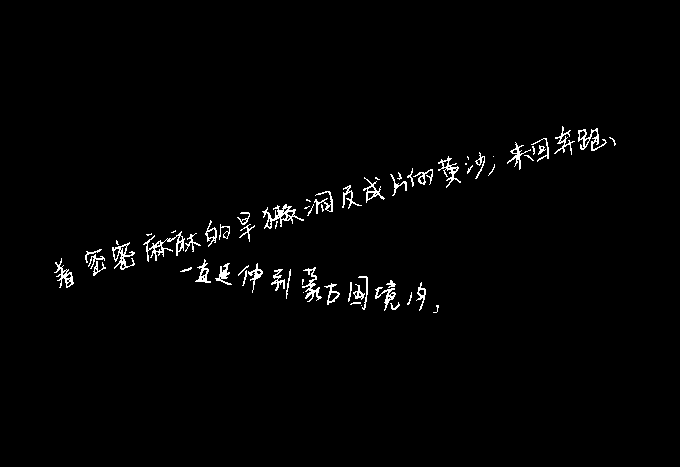 着密密麻麻的旱獭洞及成片的黄沙，来回奔跑、
一直延伸到蒙古国境内，